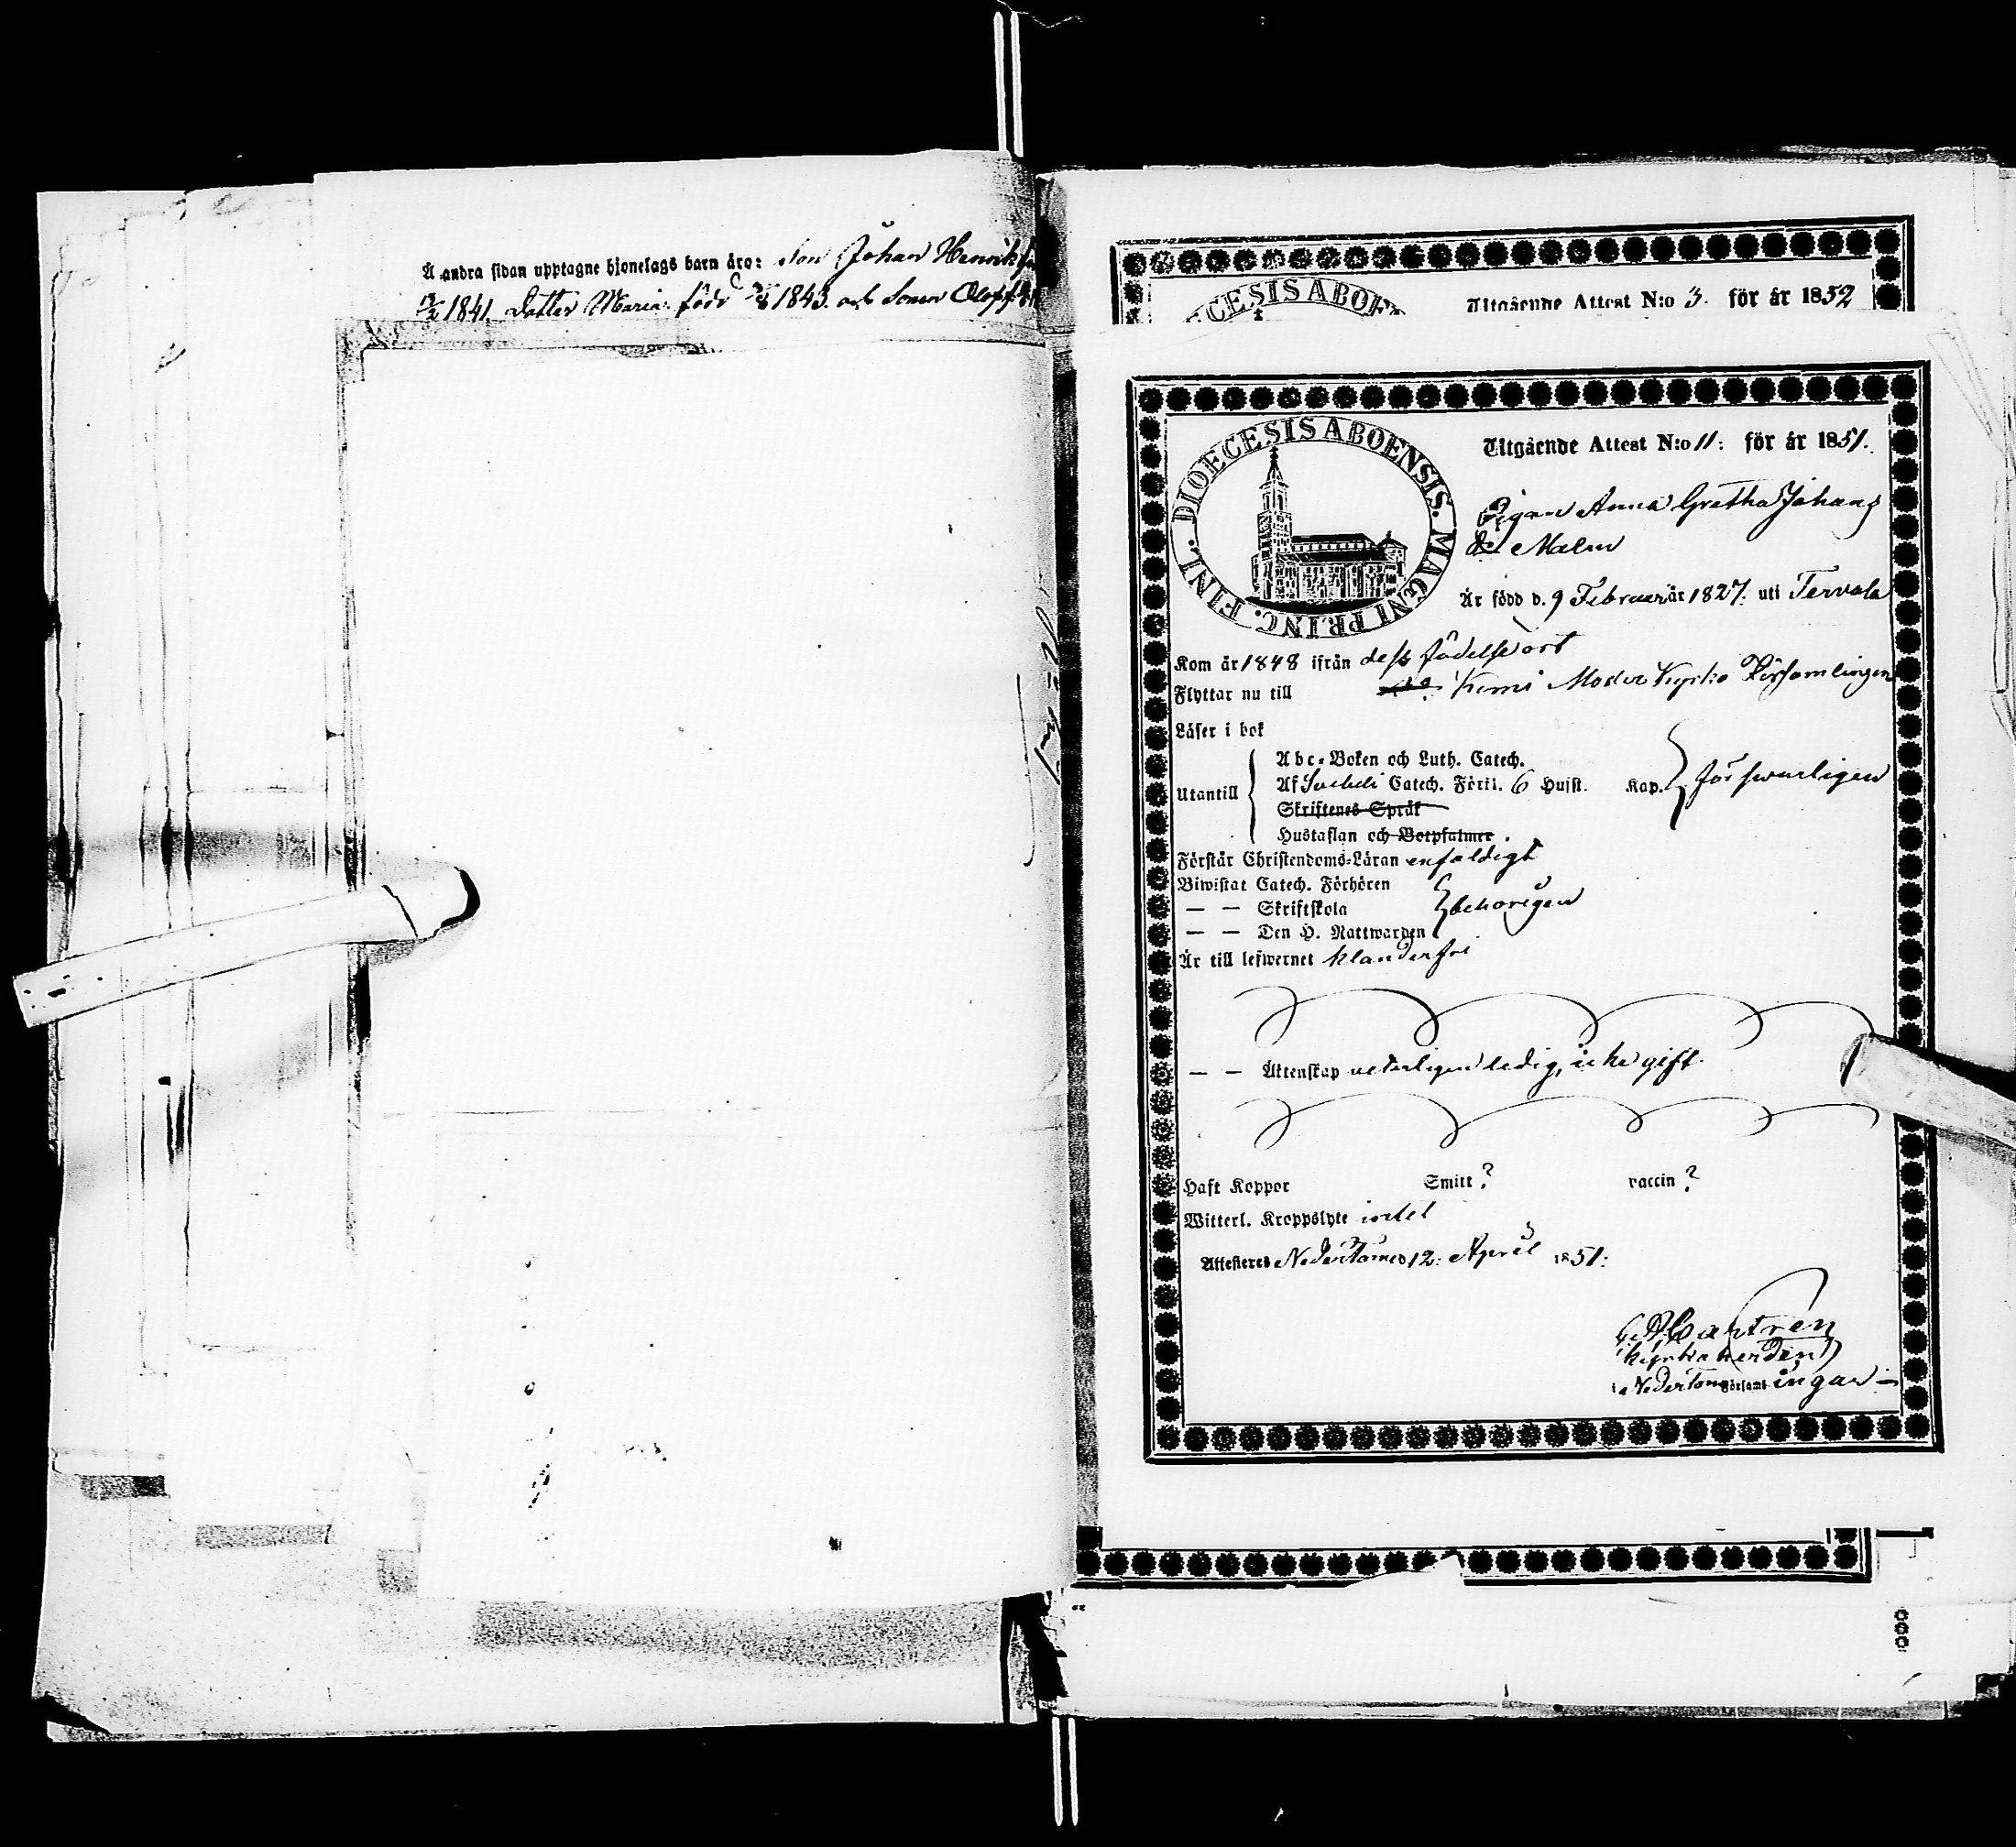 Å andra sidan upptagne hjonelags barn äro: Son Johan Henrik
1841. Dotter Maria född 1843. och Sonen Olof
DIOECESIS ABOEN
Utgående Attest N:o 3. för år 1852
DIOECESIS ABOENSIS. MAGNI PRINC. FINL.
Utgående Attest N:o 11: för år 1851.
Pigan Anna Gretha Johans
dr Malm
Är född d. 9 Februari år 1827. uti Tervola
Kom år 1848 ifrån dess födelseort
Flyttar nu till Kemi Moder Kyrko Församlingen
Läser i bok
Utantill
Abc-Boken och Luth. Catech.
Af Svebeli Catech. Förkl. 6 Husst. Kap. försvarligen
Skriftenes Språk
Hustaflan och Botpsalmer.
Förstår Christendoms-Läran enfaldigt
Biwistat Catech. Förhören
— — Skriftskola behörigen
— — Den H. Nattwarden
Är till lefwernet klanderfri
— — Äktenskap veterligen ledig, icke gift
Haft Koppor Smitt? vaccin?
Witterl. Kroppslyte intet
Attesteras Neder Torneå 12: April 1851:
Castrén
Kyrkoherde
i Neder Torneå Församl ingar